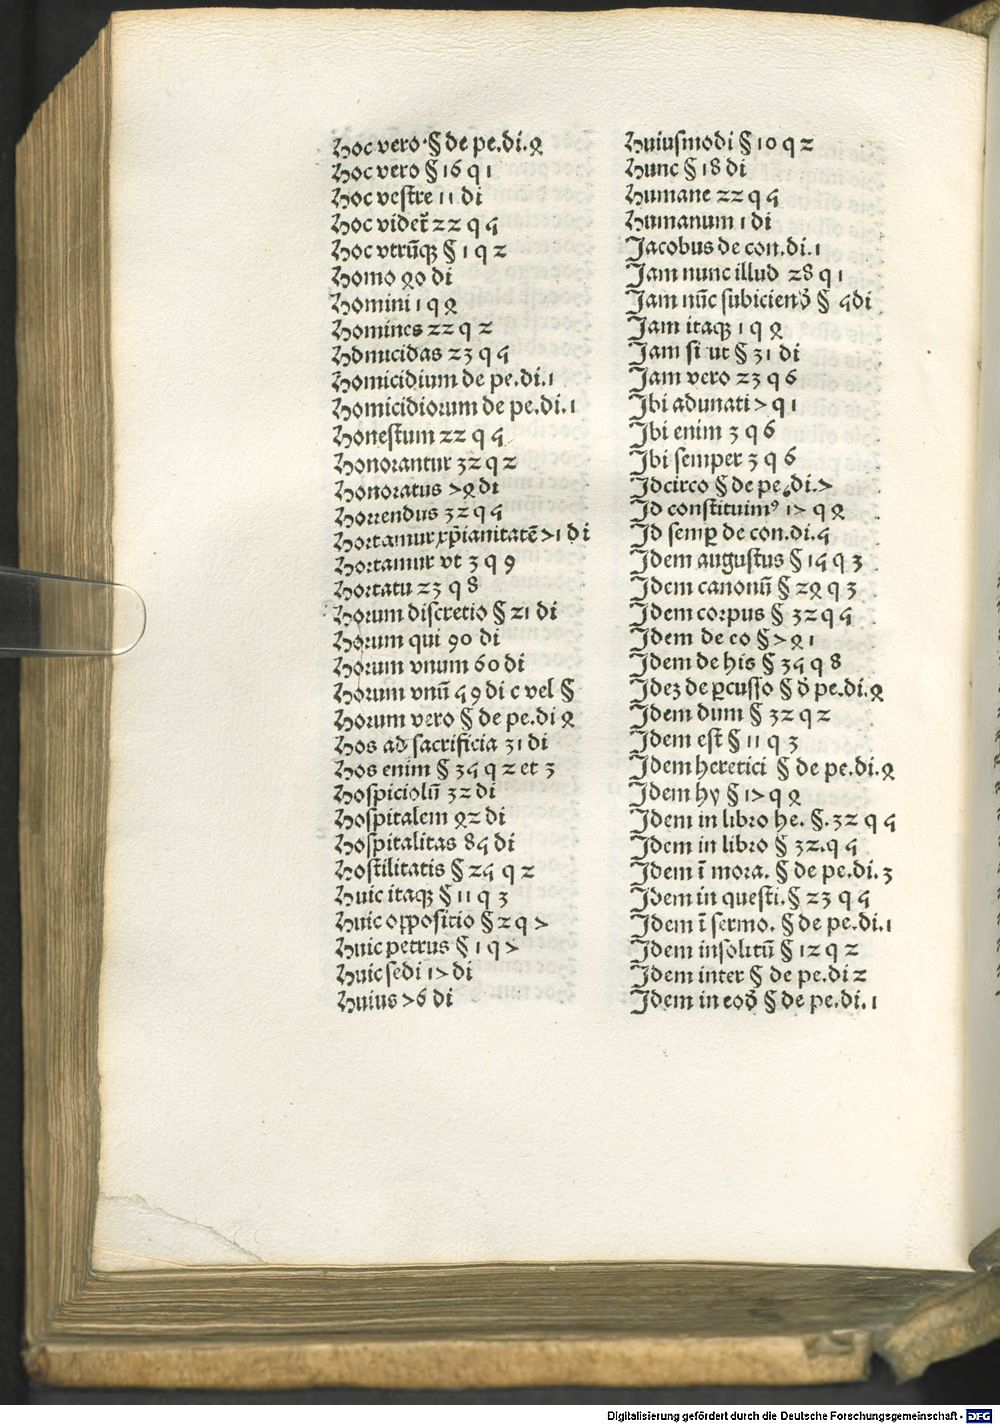 Hoc vero § de pe.di.4
Hoc vero § 16 q 1
Hoc vestre 11 di
Hoc videt̃ 22 q 5
Hoc vtrũqꝫ § 1 q 2
Homo 40 di
Homini 1 q 4
Homines 22 q 2
Homicidas 23 q 5
Homicidium de pe.di.1
Homicidiorum de pe.di.1
Honestum 22 q 5
Honorantur 32 q 2
Honoratus 74 di
Horrendus 32 q 5
Hortamur xp̃ianitatẽ 71 di
Hortamur vt 3 q 9
Hortatu 23 q 8
Horum discretio § 21 di
Horum qui 90 di
Horum vnum 60 di
Horum vnũ 59 di c vel §
Horum vero § de pe.di 4
Hos ad sacrificia 31 di
Hos enim § 35 q 2 et 3
Hospiciolũ 32 di
Hospitalem 42 di
Hospitalitas 85 di
Hostilitatis § 25 q 2
Huic itaqꝫ § 11 q 3
Huic oppositio § 2 q 7
Huic petrus § 1 q 7
Huic sedi 17 di
Huius 76 di
Huiusmodi § 10 q 2
Hunc § 18 di
Humane 22 q 5
Humanum 1 di
Jacobus de con.di.1
Jam nunc illud 28 q 1
Jam nũc subiciend̃ § 5 di
Jam itaqꝫ 1 q 4
Jam si ut § 31 di
Jam vero 23 q 6
Jbi adunati 7 q 1
Jbi enim 3 q 6
Jbi semper 3 q 6
Jdcirco § de pe.di.7
Jd constituimꝰ 17 q 4
Jd semꝑ de con.di.5
Jdem augustus § 15 q 3
Jdem canonũ § 24 q 3
Jdem corpus § 32 q 5
Jdem de eo § 7 q 1
Jdem de his § 35 q 8
Jdeꝫ de ꝑcusso § d̃ pe.di.4
Jdem dum § 32 q 2
Jdem est § 11 q 3
Jdem heretici § de pe.di.4
Jdem hy § 17 q 4
Jdem in libro he. §. 32 q 5
Jdem in libro § 32.q 5
Jdem ĩ mora. § de pe.di.3
Jdem in questi.§ 23 q 5
Jdem ĩ sermo. § de pe.di.1
Jdem insolitũ § 12 q 2
Jdem inter § de pe.di 2
Jdem in eod̃ § de pe.di.1
Digitalisierung gefördert durch die Deutsche Forschungsgemeinschaft - DFG